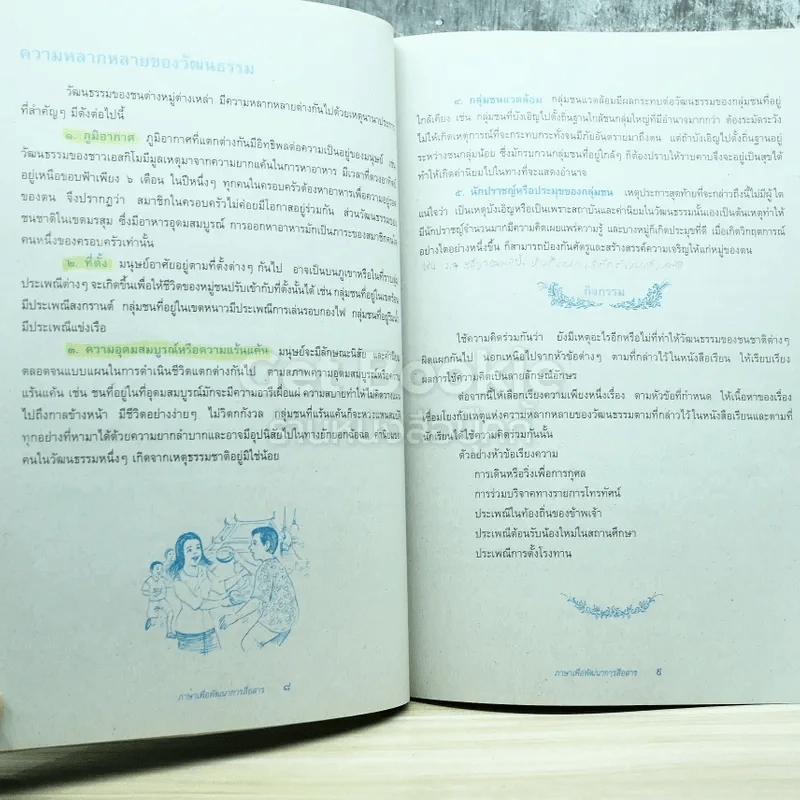 ความหลากหลายของวัฒนธรรม
วัฒนธรรมของชนต่างหมู่ต่างเหล่า มีความหลากหลายต่างกันไปด้วยเหตุนานาประการ
ที่สำคัญๆ มีดังต่อไปนี้
๑. ภูมิอากาศ ภูมิอากาศที่แตกต่างกันมีอิทธิพลต่อความเป็นอยู่ของมนุษย์ เช่น
วัฒนธรรมของชาวเอสกิโมมีมูลเหตุมาจากความยากแค้นในการหาอาหาร มีเวลาที่ดวงอาทิตย์
อยู่เหนือขอบฟ้าเพียง ๖ เดือน ในปีหนึ่งๆ ทุกคนในครอบครัวต้องหาอาหารเพื่อความอยู่รอด
ของตน จึงปรากฏว่า สมาชิกในครอบครัวไม่ค่อยมีโอกาสอยู่ร่วมกัน ส่วนวัฒนธรรมของ
ชนชาติในเขตมรสุม ซึ่งมีอาหารอุดมสมบูรณ์ การออกหาอาหารมักเป็นภาระของสมาชิก
คนหนึ่งของครอบครัวเท่านั้น
๒. ที่ตั้ง มนุษย์อาศัยอยู่ตามที่ตั้งต่างๆ กันไป อาจเป็นบนภูเขาหรือในที่ราบลุ่ม
ประเพณีต่างๆ จะเกิดขึ้นเพื่อให้ชีวิตของหมู่ชนปรับเข้ากับที่ตั้งนั้นได้ เช่น กลุ่มชนที่อยู่ในเขตร้อน
มีประเพณีสงกรานต์ กลุ่มชนที่อยู่ในเขตหนาวมีประเพณีการเล่นรอบกองไฟ กลุ่มชนที่อยู่ริมน้ำ
มีประเพณีแข่งเรือ
๓. ความอุดมสมบูรณ์หรือความแร้นแค้น มนุษย์จะมีลักษณะนิสัย และค่านิยม
ตลอดจนแบบแผนในการดำเนินชีวิตแตกต่างกันไป ตามสภาพความอุดมสมบูรณ์หรือความ
แร้นแค้น เช่น ชนที่อยู่ในที่อุดมสมบูรณ์มักจะมีความอารีเผื่อแผ่ ความสบายทำให้ไม่คิด
ไปถึงกาลข้างหน้า มีชีวิตอย่างง่ายๆ ไม่วิตกกังวล กลุ่มชนที่แร้นแค้นก็จะหวงแหนสมบัติ
ทุกอย่างที่หามาได้ด้วยความยากลำบากและอาจมีอุปนิสัยไปในทางยักยอกฉ้อฉล ค่านิยมของ
คนในวัฒนธรรมหนึ่งๆ เกิดจากเหตุธรรมชาติอยู่มิใช่น้อย
ภาษาเพื่อพัฒนาการสื่อสาร ๘
๔. กลุ่มชนแวดล้อม กลุ่มชนแวดล้อมมีผลกระทบต่อวัฒนธรรมของกลุ่มชนที่อยู่
ใกล้เคียง เช่น กลุ่มชนที่บังเอิญไปตั้งถิ่นฐานใกล้ชนกลุ่มใหญ่ที่มีอำนาจมากกว่า ต้องระมัดระวัง
ไม่ให้เกิดเหตุการณ์ที่จะกระทบกระทั่งจนมีภัยอันตรายมาถึงตน แต่ถ้าบังเอิญไปตั้งถิ่นฐานอยู่
ระหว่างชนกลุ่มน้อย ซึ่งมักรบกวนกลุ่มชนที่อยู่ใกล้ๆ ก็ต้องปราบให้ราบคาบจึงจะอยู่เป็นสุขได้
ทำให้เกิดค่านิยมไปในทางที่จะแสดงอำนาจ
๕. นักปราชญ์หรือประมุขของกลุ่มชน เหตุประการสุดท้ายที่จะกล่าวถึงนี้ไม่มีผู้ใด
แน่ใจว่า เป็นเหตุบังเอิญหรือเป็นเพราะสถาบันและค่านิยมในวัฒนธรรมนั้นเองเป็นต้นเหตุทำให้
มีนักปราชญ์จำนวนมากมีความคิดเผยแพร่ความรู้ และบางหมู่ก็เกิดประมุขที่ดี เมื่อเกิดวิกฤตการณ์
อย่างใดอย่างหนึ่งขึ้น ก็สามารถป้องกันศัตรูและสร้างสรรค์ความเจริญให้แก่หมู่ของตน
กิจกรรม
ใช้ความคิดร่วมกันว่า ยังมีเหตุอะไรอีกหรือไม่ที่ทำให้วัฒนธรรมของชนชาติต่างๆ
ผิดแผกกันไป นอกเหนือไปจากหัวข้อต่างๆ ตามที่กล่าวไว้ในหนังสือเรียน ให้เรียบเรียง
ผลการใช้ความคิดเป็นลายลักษณ์อักษร
ต่อจากนี้ให้เลือกเรียงความเพียงหนึ่งเรื่อง ตามหัวข้อที่กำหนด ให้เนื้อหาของเรื่อง
เชื่อมโยงกับเหตุแห่งความหลากหลายของวัฒนธรรมตามที่กล่าวไว้ในหนังสือเรียนและตามที่
นักเรียนได้ใช้ความคิดร่วมกันนั้น
ตัวอย่างหัวข้อเรียงความ
การเดินหรือวิ่งเพื่อการกุศล
การร่วมบริจาคทางรายการโทรทัศน์
ประเพณีในท้องถิ่นของข้าพเจ้า
ประเพณีต้อนรับน้องใหม่ในสถานศึกษา
ประเพณีการตั้งโรงทาน
ภาษาเพื่อพัฒนาการสื่อสาร ๙